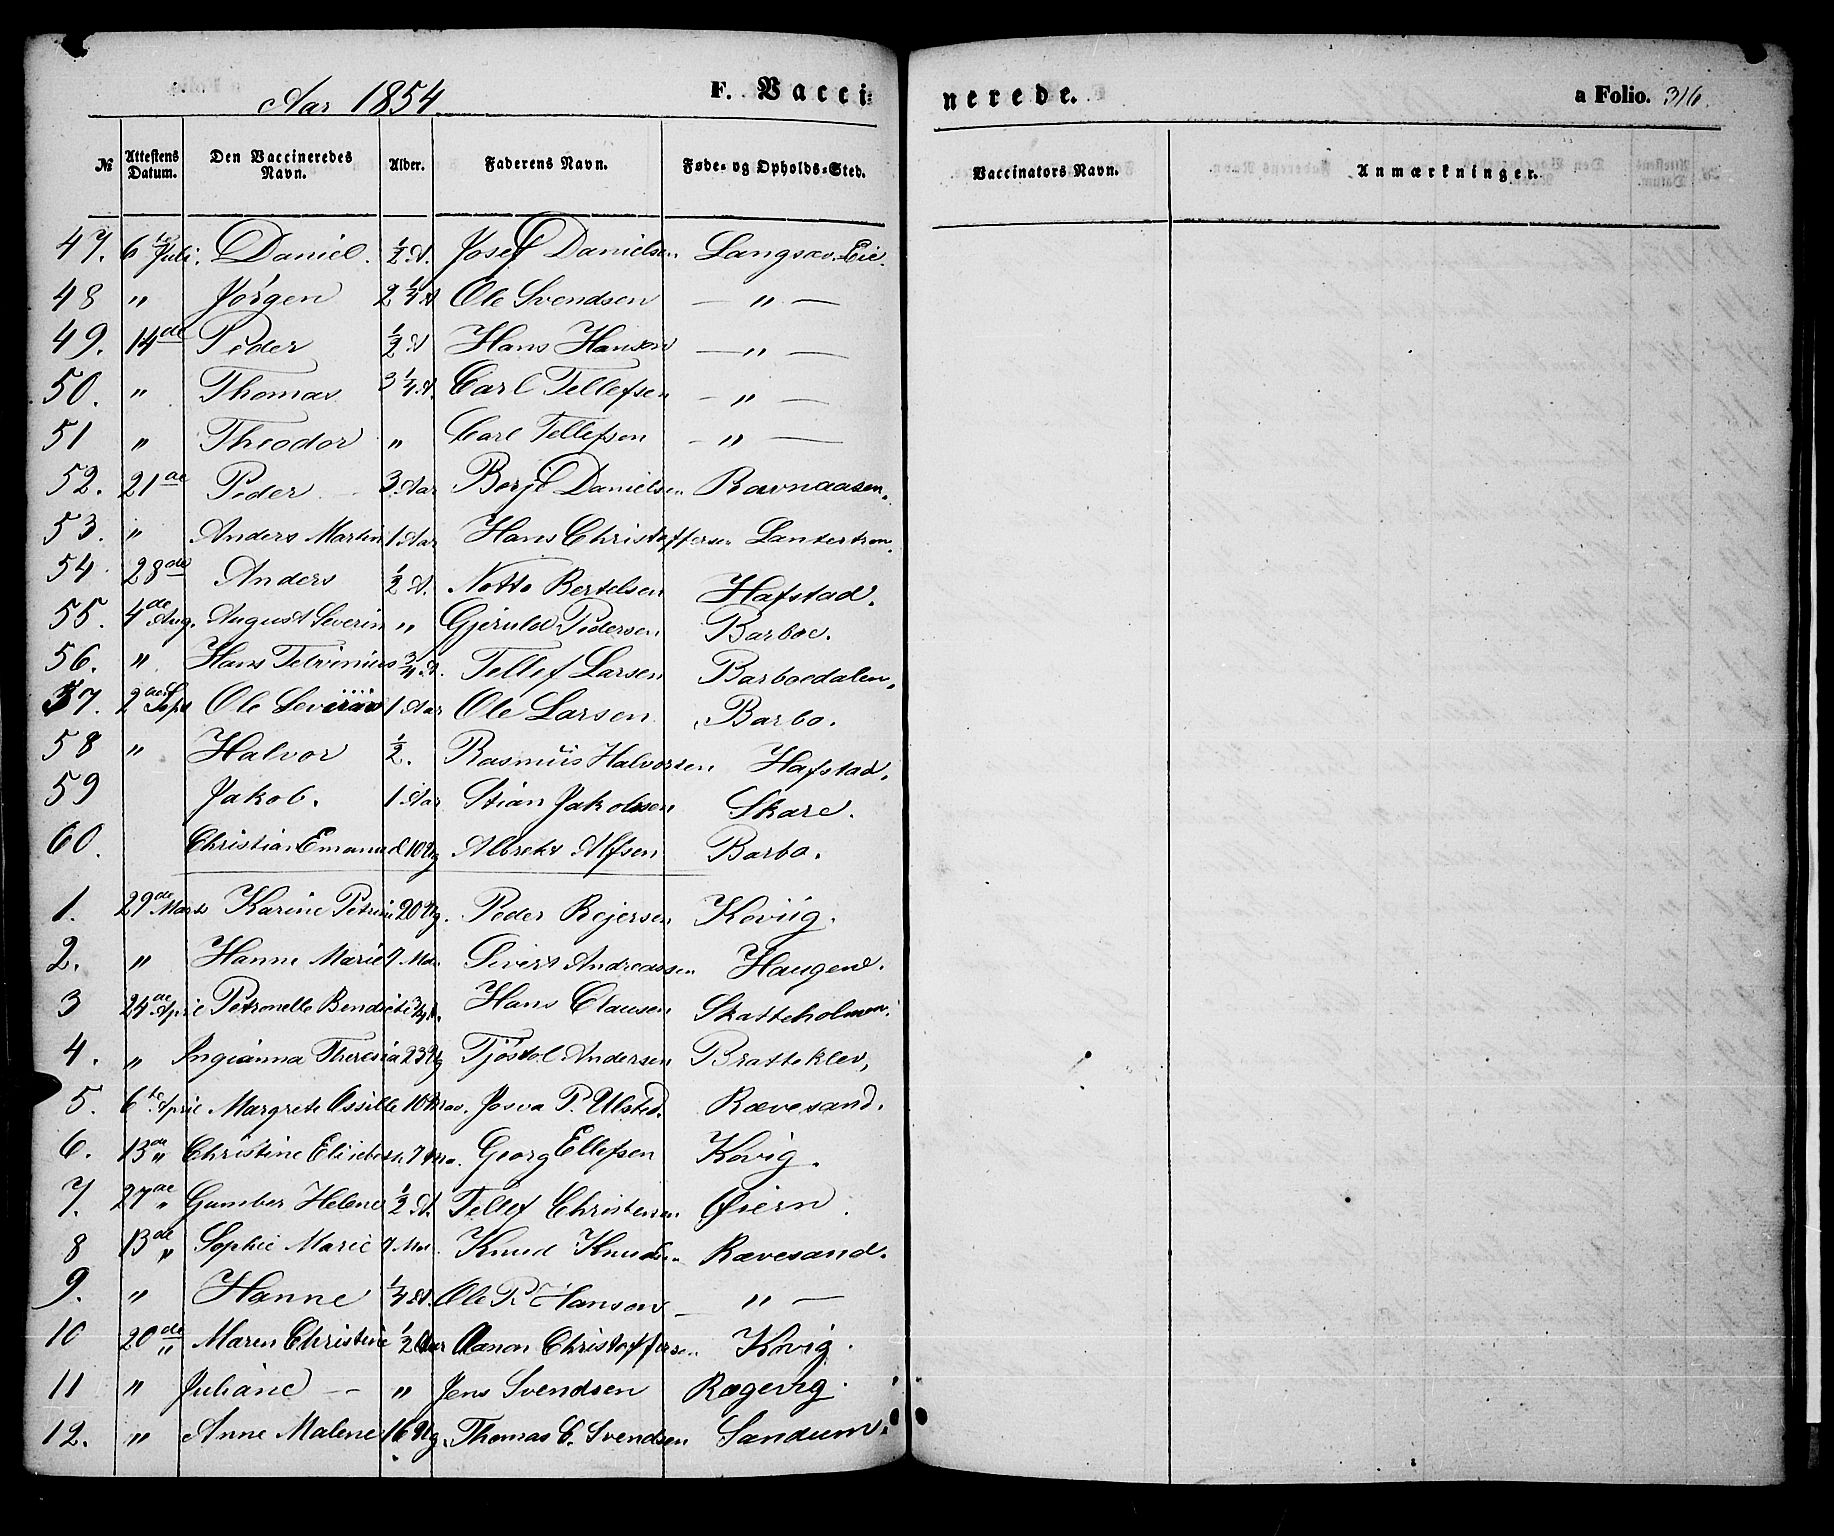 Aar 1854. F. Vacci-
nerede. a Folio. 316.
№ Attestens Datum. Den Vaccineredes Navn. Alder. Faderens Navn. Føde- og Opholds-Sted. Vaccinators Navn. Anmærkninger.
47. 6te Juli. Daniel. ½ A. Josef Danielsen Langsæv-Eie.
48 " Jørgen 2¼ A Ole Svendsen — " —
49. 14de Peder ½ A Hans Hansen — " —
50. " Thomas 3¼ A. Carl Tellefsen — " —
51 " Theodor " Carl Tellefsen — " —
52. 21de Peder 3. Aar Berje Danielsen Ravnaasen.
53. " Anders Martin 1 Aar Hans Christoffersen
54 28de Anders ½ A. Notto Bertelsen Hafstad.
55. 4de Aug. August Severin " Gjeruld Pedersen Barboe.
56. " Hans ¾ A. Tellef Larsen Barboedalen.
57. 2de Sept Ole 1 Aar Ole Larsen Barbo.
58 " Halvor ½. Rasmus Halvorsen Hafstad.
59 Jakob. 1 Aar Stian Jakobsen Skare.
60. Christian Emanuel 10 Ug Albrekt Alfsen Barbo.
1. 29de Marts Karine Petrine 20 Ug. Peder Rejersen Koviig.
2. " Hanne Marie 7 Mdr. Sivert Andreassen Haugene.
3 24de April Petronelle Hans Clausen Skatteholmen.
4. " Ingianna Theresia 23 Ug Tjøstol Andersen Bratteklev,
5. 6te April Margrete Josva P. Ulsted. Rævesand.
6. 13de " Christine Georg Ellefsen Kovig.
7. 27de " Gumber Helene ½ A. Tellef Christensen Øiern.
8 13de " Sophie Marie 7 Mdr. Knud Knudsen Rævesand.
9. " Hanne ¼ A. Ole P. Hansen — " —
10 20de " Maren Christine ½ Aar Aanon Christoffersen Kovig.
11 " Juliane — — " Jens Svendsen Rægevig.
12. " Anne Malene 16 Ug. Thomas C. Svendsen Sandum.